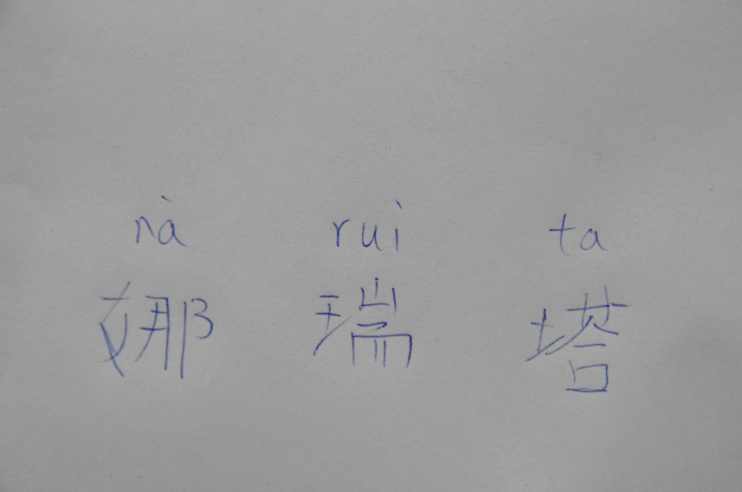 nà ruì ta
娜 瑞 塔